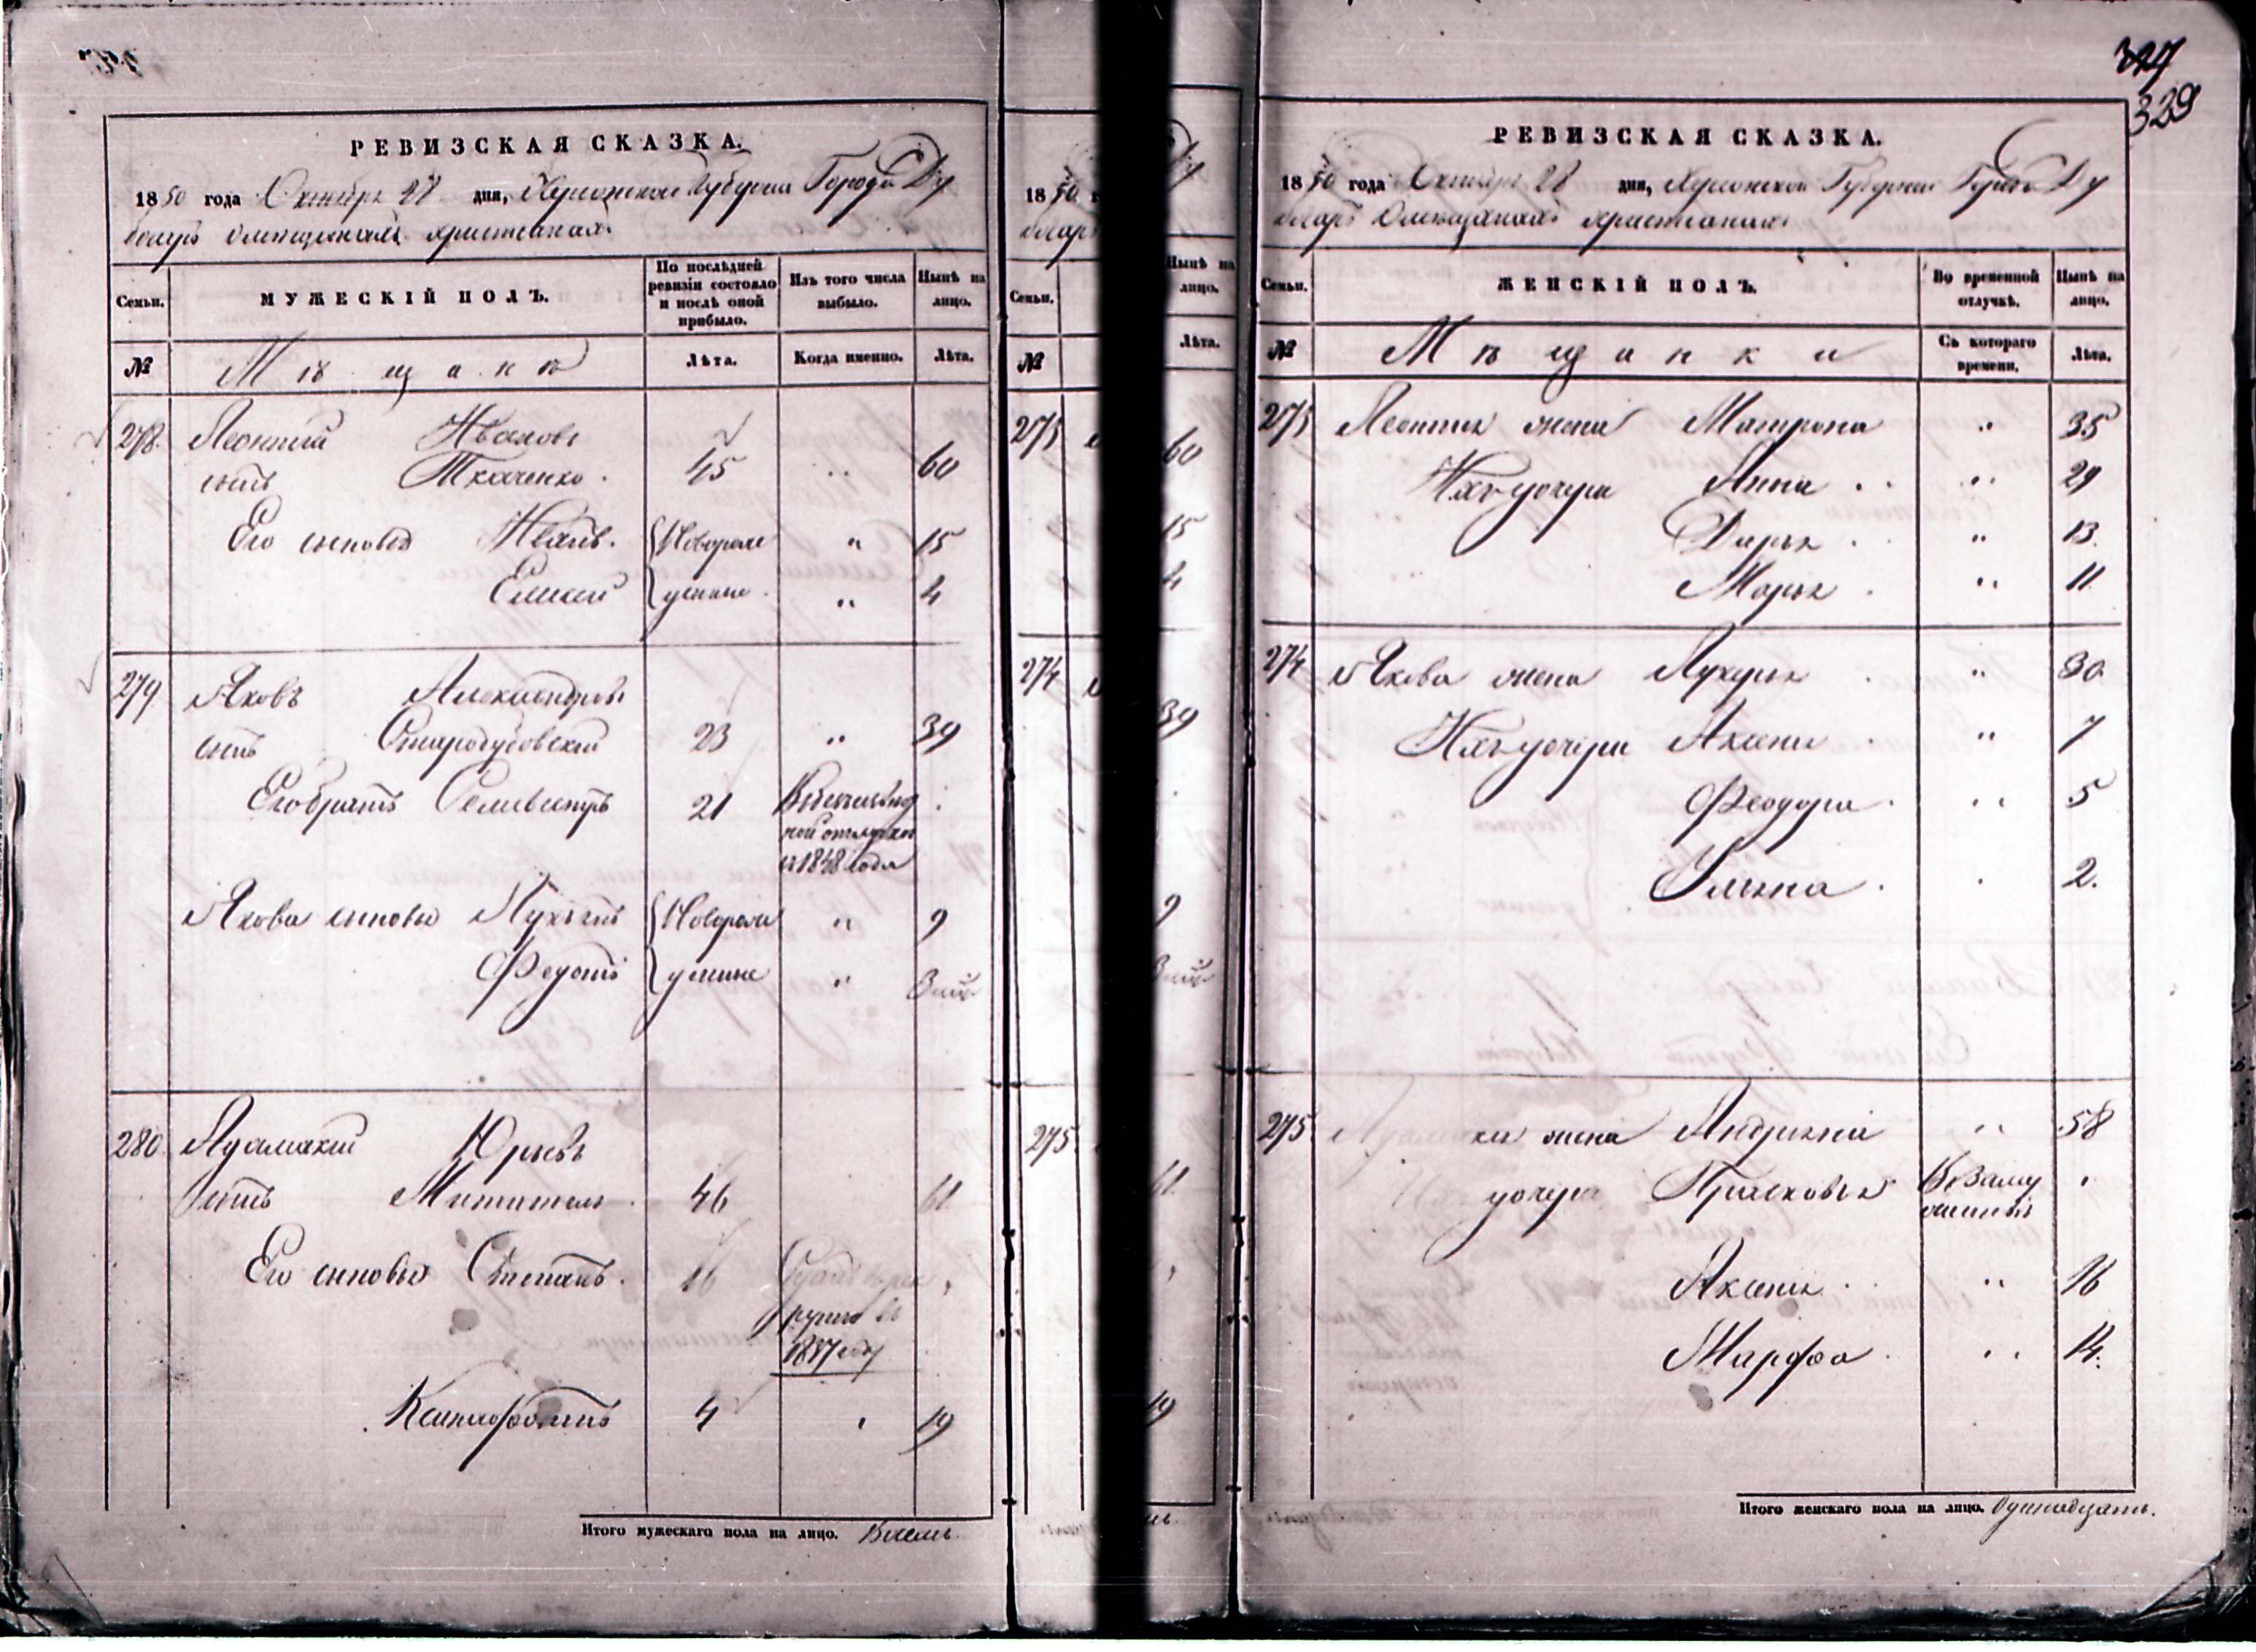 РЕВИЗСКАЯ СКАЗКА.
1850 года Октября 28 дня, Херсонской Губернии Города Ду
боссаръ о мещанахъ христианахъ
Семьи.
МУЖЕСКІЙ ПОЛЪ.
По послѣдней ревизіи состояло и послѣ оной прибыло.
Изъ того числа выбыло.
Нынѣ на лицо.
№
Мѣщане
Лѣта.
Когда именно.
Лѣта.
278. Леонтий Ивановъ
сынъ Ткаченко. 45 " 60
Его сыновья Иванъ. Новорож " 15
Елисей денные. " 4
279 Яковъ Александровъ
сынъ Стародубовский 23 " 39
Его братъ Селивестръ 21
ной отлучке
съ 1848 года
Якова сыновья Лукьянъ Новорож " 9
Федотъ денные "
280 Адамакий Юрьевъ
сынъ Мититель 46 61
Его сыновья Степанъ. 16
руты въ
1837 году
Ксенофонтъ 4 " 19
Итого мужескаго пола на лицо. Восемь.
18 50 г
Семьи.
№
273
274
275
Нынѣ на лицо.
Лѣта.
60
15
4
39
9
61
19
327
329
РЕВИЗСКАЯ СКАЗКА.
1850 года Октября 28 дня, Херсонской Губернии Города Ду
боссаръ о мещанахъ христианахъ
Семьи.
ЖЕНСКІЙ ПОЛЪ.
Во временной отлучкѣ.
Нынѣ на лицо.
№
Мѣщанки
Съ котораго времени.
Лѣта.
273 Леонтия жена Матрона " 35
Ихъ дочери Анна " 29
Дарья " 13.
Марья " 11
274 Якова жена Лукерья " 30
Ихъ дочери Аксенья " 7
Феодора " 5
Ульяна 2.
275 жена " 58
дочери Прасковья Въ Заму
жестве
Аксенья " 16
Марфа " 14.
Итого женскаго пола на лицо. Одинадцать.